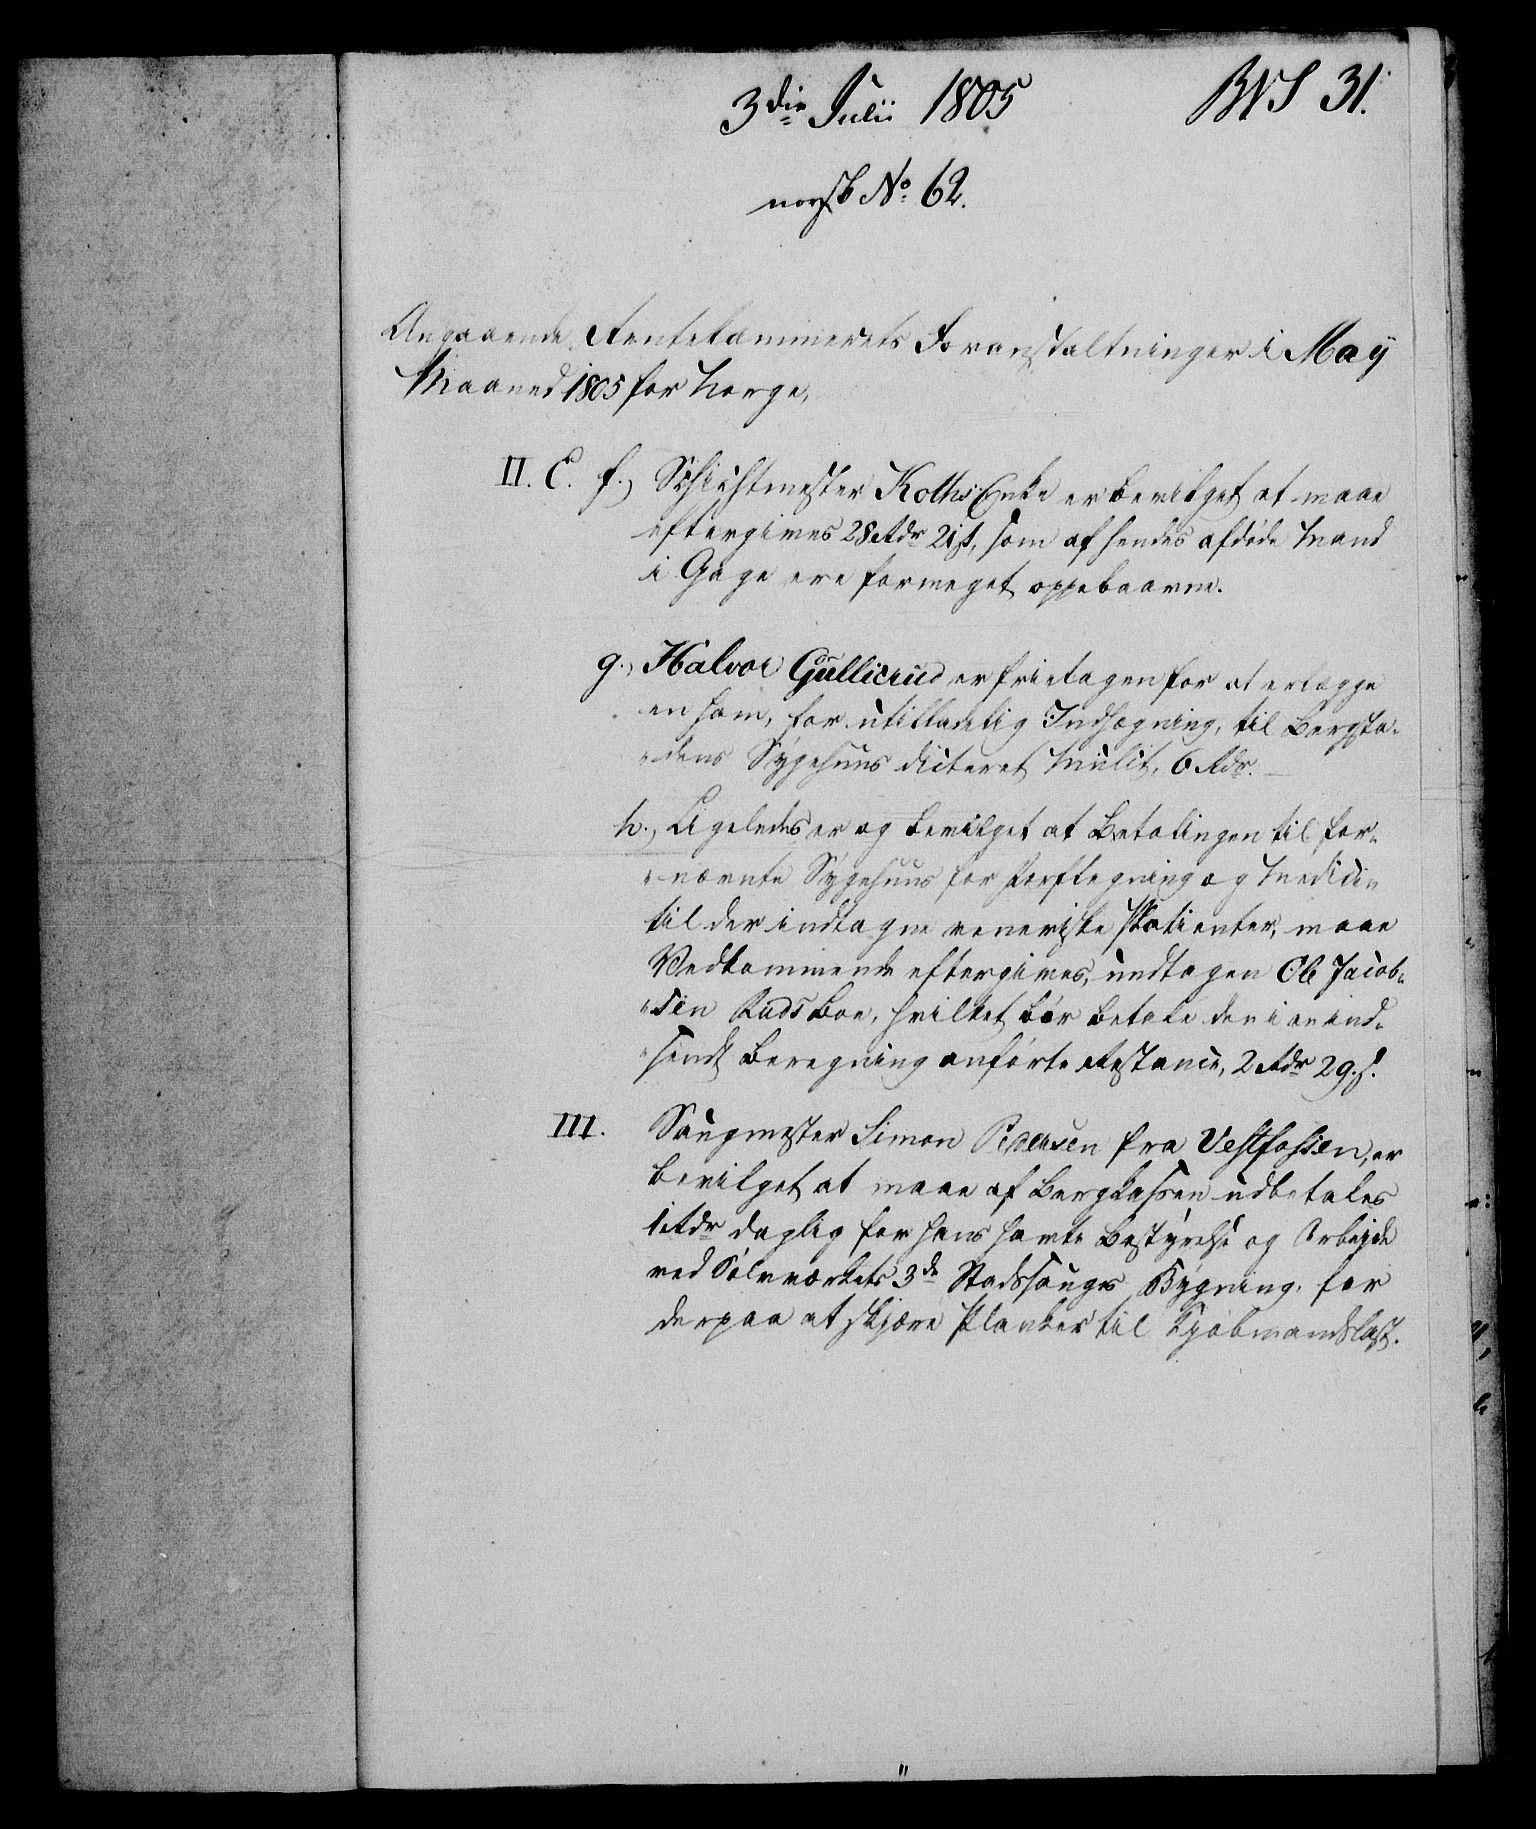 3die Julii 1805
BVS 31.
norsk No 62.
Angaaende Rentekammerets Foranstaltninger i May
Maaned 1805 for Norge,
II. C. f., Schichtmester Koths Enke er bevilget at maae
eftergives 28 Rdr 21 s, som af hendes afdøde Mand
i Gage ere formeget oppebaarne.
g., Halvor Gullicrud er frietagen for at erlægge
en ham, for utilladelig Indhegning, til Bergsta-
dens Sygehuus dicteret Mulct, 6 Rdr.
h., Ligeledes er og bevilget at Betalingen til for-
nævnte Sygehuus for Forflegning og Medicin
til der indtagne veneriske Patienter, maae
Vedkommende eftergives, undtagen Ole Jacob-
sen Ruds Boe, hvilket bør betale den i en ind-
sendt Beregning anførte Restance, 2 Rdr 29 s.
III. Saugmester Simon Pedersen fra Vestfossen, er
bevilget at maae af Bergkassen udbetales
1 Rdr daglig for hans havte Bestyrelse og Arbejde
ved Sølvværkets 3de Stadssauges Bygning, for
derpaa at skjære Planker til Kjøbmandslast.